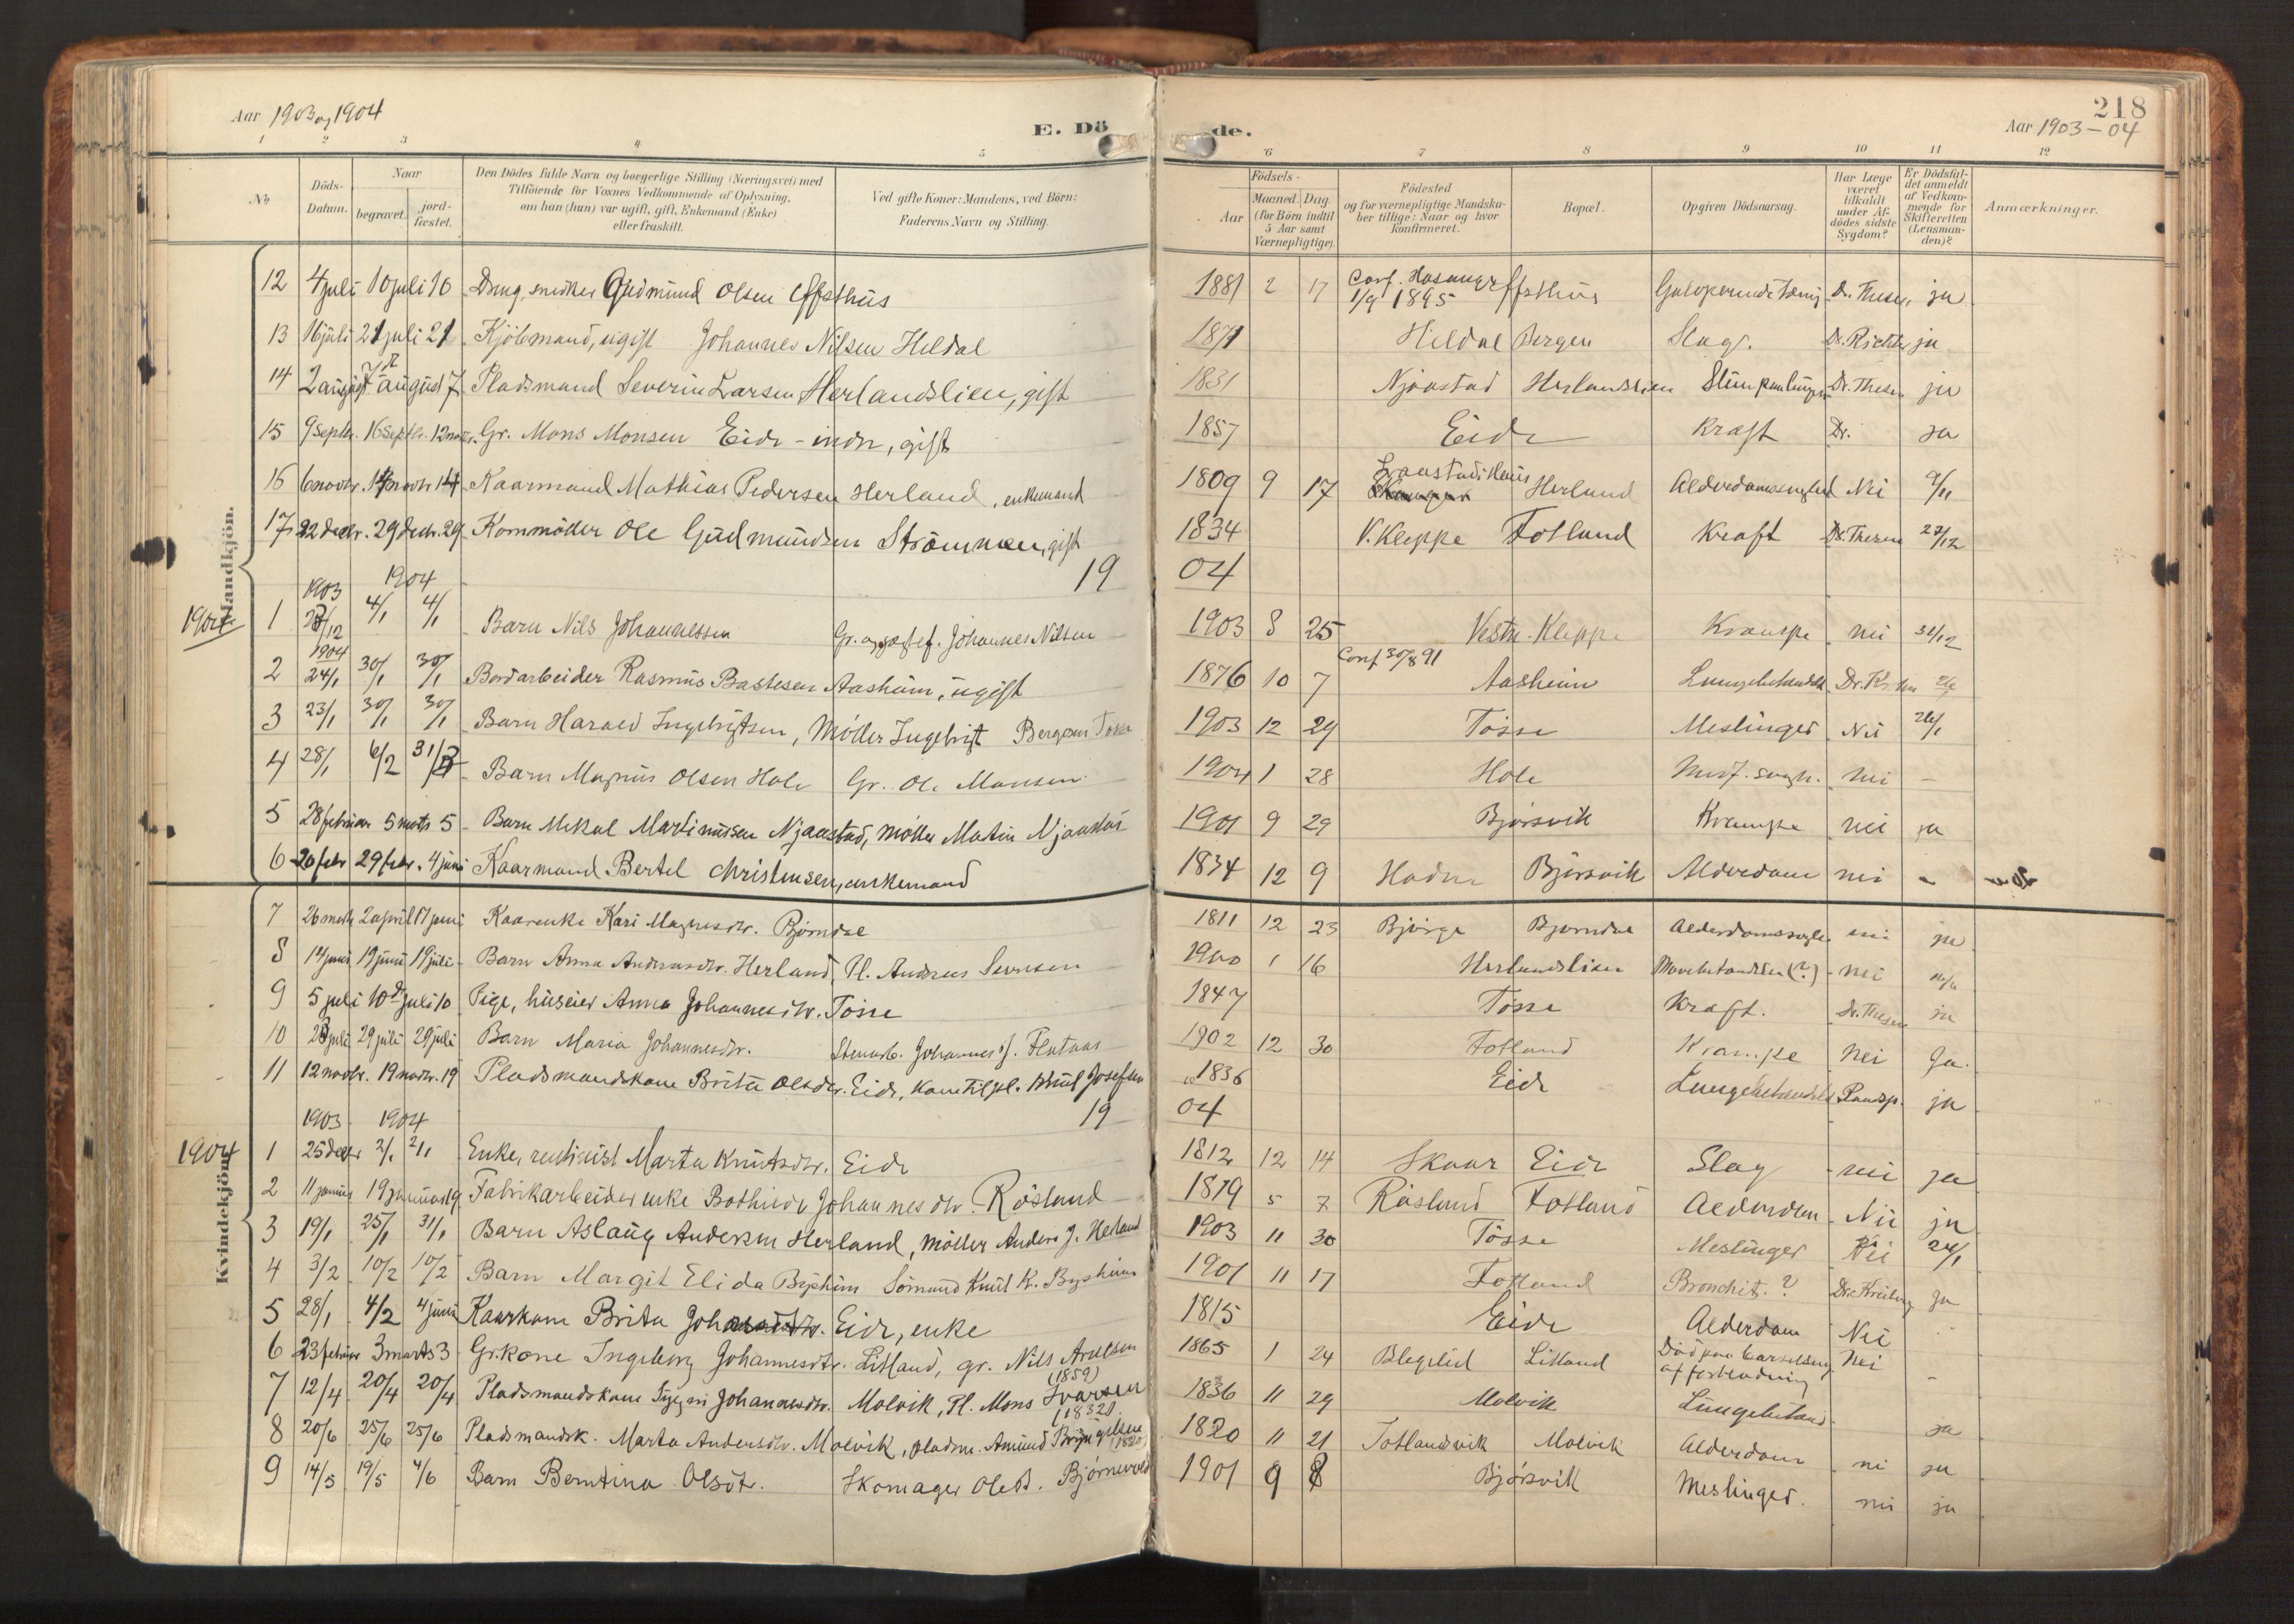 Aar 1903 og 1904
E. Döde.
218
Aar 1903-04
1 2 3 4 5 6 7 8 9 10 11 12
No
Döds-Datum.
Naar
begravet.
jord-fæstet.
Den Dödes fulde Navn og borgerlige Stilling (Næringsvei) med
Tilföiende for Voxnes Vedkommende af Oplysning,
om han (hun) var ugift, gift, Enkemand (Enke)
eller fraskilt.
Ved gifte Koner: Mandens, ved Börn:
Faderens Navn og Stilling.
Födsels-
Aar
Maaned. Dag.
(for Börn indtil
5 Aar samt
Værnepligtige)
Födested
og for værnepligtige Mandska-
ber tillige: Naar og hvor
konfirmeret.
Bopæl.
Opgiven Dödsaarsag.
Har Læge
været
tilkaldt
under Af-
dödes sidste
Sygdom?
Er Dödsfal-
det anmeldt
af Vedkom-
mende for
Skifteretten
(Lensman-
den)?
Anmærkninger.
Mandkjön.
12 4 juli 10 juli 10 Dreng, snedker Gudmund Olsen 1881 2 17 Conf. Hosanger 1/9 1895 Dr. Thesen ja
13 16 juli 21 juli 21 Kjöbmand, ugift Johannes Nilsen Heldal 1871 Hildal Bergen Slag. Dr. Richter ja
14 2 august 7 august 7 Pladsmand Severin Larsen Herlandslien, gift 1831 Njaastad Herlandslien Dr. Thesen ja
15 9 septbr. 16 septbr. 12 novbr. Gr. Mons Monsen Eide-indre, gift 1857 Eide Kræft Dr. ja
16 6 novbr. 14 novbr. 14 Kaarmand Mathias Pedersen Herland, enkemand 1809 9 17 Herland Nei 9/11
17 22 decbr. 29 decbr. 29 Kornmöller Ole Gudmundsen Strömmen, gift 1834 V. Kleppe Fotland Kræft Dr. Thesen 27/12
1903 1904 1904
1904
1 28/12 4/1 4/1 Barn Nils Johannessen Gr. og Johannes Nilsen 1903 8 25 Vestre Kleppe Krampe nei 31/12
1904
2 24/1 30/1 30/1 Bordarbeider Rasmus Bastesen Aasheim, ugift 1876 10 7 Conf 30/8 91 Aasheim
3 23/1 30/1 30/1 Barn Harald Ingebrigtsen, Möller Ingebrigt Bergesen Tosse 1903 12 29 Tösse Meslinger Nei 26/1
4 28/1 6/2 31/3 Barn Magnus Olsen Hole Gr. Ole Monsen 1904 1 28 Hole nei -
5 28 februar 5 marts 5 Barn Mikal Martinussen Njaastad, Möller Matin Njaastad 1901 9 29 Bjørsvik Krampe nei ja
6 20 febr 29 febr. 4 juni Kaarmand Bertel Christensen, enkemand 1834 12 9 Bjørsvik Alderdom nei -
7 26 marts 2 april 17 juni Kaarenke Kari Magnesdtr. Bjørndal 1811 12 23 Bjørge Bjørndal nei ja
8 14 juni 19 juni 19 juli Barn Anna Andreasdtr. Herland, Pl. Andreas 1900 1 16 Herlandslien nei
9 5 juli 10 juli 10 Pige, huseier Anna Johannesdtr. Tösse 1847 Tösse Kræft. Dr. Thesen ja
10 23 juli 29 juli 29 juli Barn Maria Johannesdtr. Stenarb. Johannes J. Flataas 1902 12 30 Fotland Krampe Nei Ja.
11 12 novbr. 19 novbr. 19 Pladsmandskone Brita Olsdtr. Eide, Kone til pl. Josefsen 1836 Eide ja
1903 1904 1904
1904
Kvindekjön.
1 25 decbr 2/1 2/1 Enke, rentenist Marta Knutsdtr. Eide 1812 12 14 Skaar Eide Slag nei ja
2 11 januar 19 januar 19 Fabrikarbeider enke Bothilde Johannesdtr. Røsland 1819 5 7 Røsland Fotland Alderdom Nei ja
3 19/1 25/1 31/1 Barn Aslaug Andersen Herland, Möller Anders J. Herland 1903 11 30 Tösse Meslinger Nei 24/1
4 3/2 10/2 10/2 Barn Margit Elida Bysheim Sömand Knut K. Bysheim 1901 11 17 Fotland Bronchit. ? ja
5 28/1 4/2 4 juni Kaarkone Brita Eide, enke 1815 Eide Alderdom Nei
6 23 februar 3 marts 3 Gr.kone Ingeborg Johannesdtr. Litland, gr. Nils Arnesen (1859) 1865 1 24 Blegelid Litland Död paa barselseng af forblødning Nei -
7 12/4 20/4 20/4 Pladsmandskone Johannesdtr. Molvik, Pl. Mons Ivarsen (1832) 1836 11 29 Molvik ja
8 20/6 25/6 25/6 Pladsmandsk. Marta Andersdtr. Molvik, pladsm. Amund Brynjelsen (1820) 1820 11 21 Totlandsvik Molvik Alderdom nei ja
9 14/5 19/5 4/6 Barn Berntina Olsdtr. Skomager Ole B. Bjørnevold 1901 9 8 Bjørsvik Meslinger. nei ja